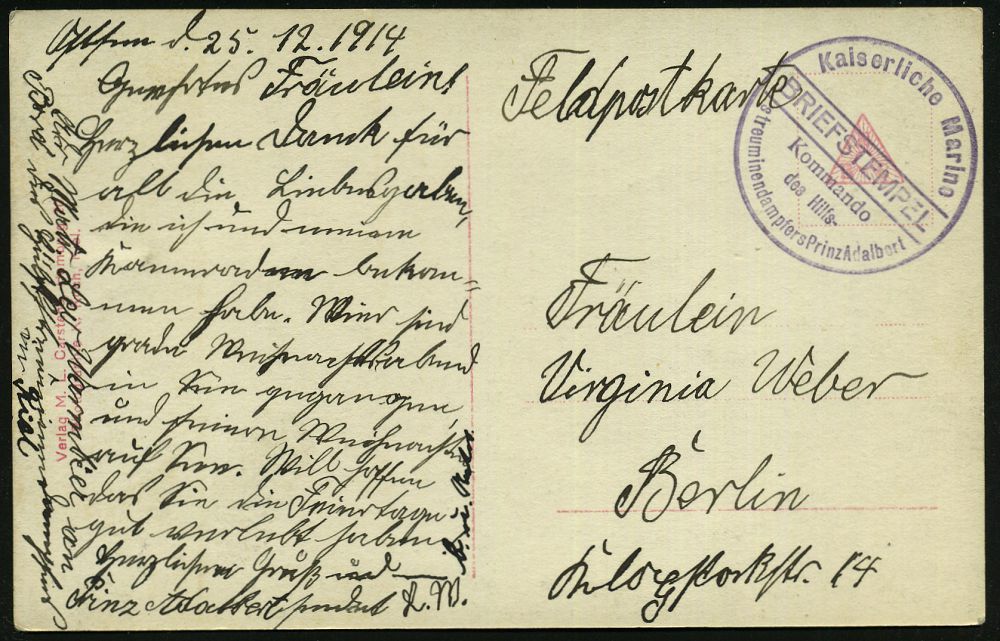 d. 25. 12. 1914
Geehrtes Fräulein!
Herzlichen Dank für
all die Liebesgaben,
die ich und meine
Kameraden bekom=
men habe. Wier sind
grade Weihnachtsabend
in See gegangen,
und feiern Weihnachten
auf See. Will hoffen
das Sie die Feiertage
gut verlebt haben.
Herzlichen Gruß und
Prinz Adalbert sendet R. W.
von Kiel
Verlag M. L. Carstens,
Feldpostkarte
Kaiserliche Marine
BRIEFSTEMPEL
Kommando
des Hilfs-
streuminendampfers Prinz Adalbert
Fräulein
Virginia Weber
Berlin
Klopstockstr. 14